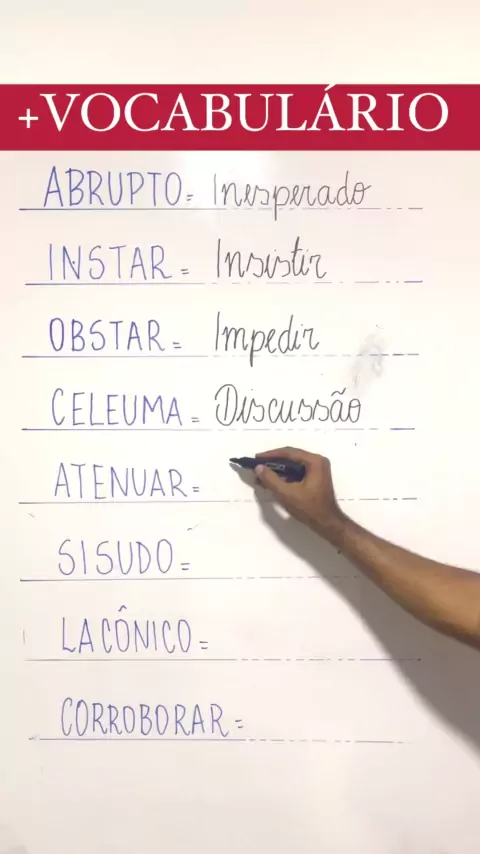 +VOCABULÁRIO
ABRUPTO= Inesperado
INSTAR= Insistir
OBSTAR= Impedir
CELEUMA= Discussão
ATENUAR=
SISUDO=
LACÔNICO=
CORROBORAR=